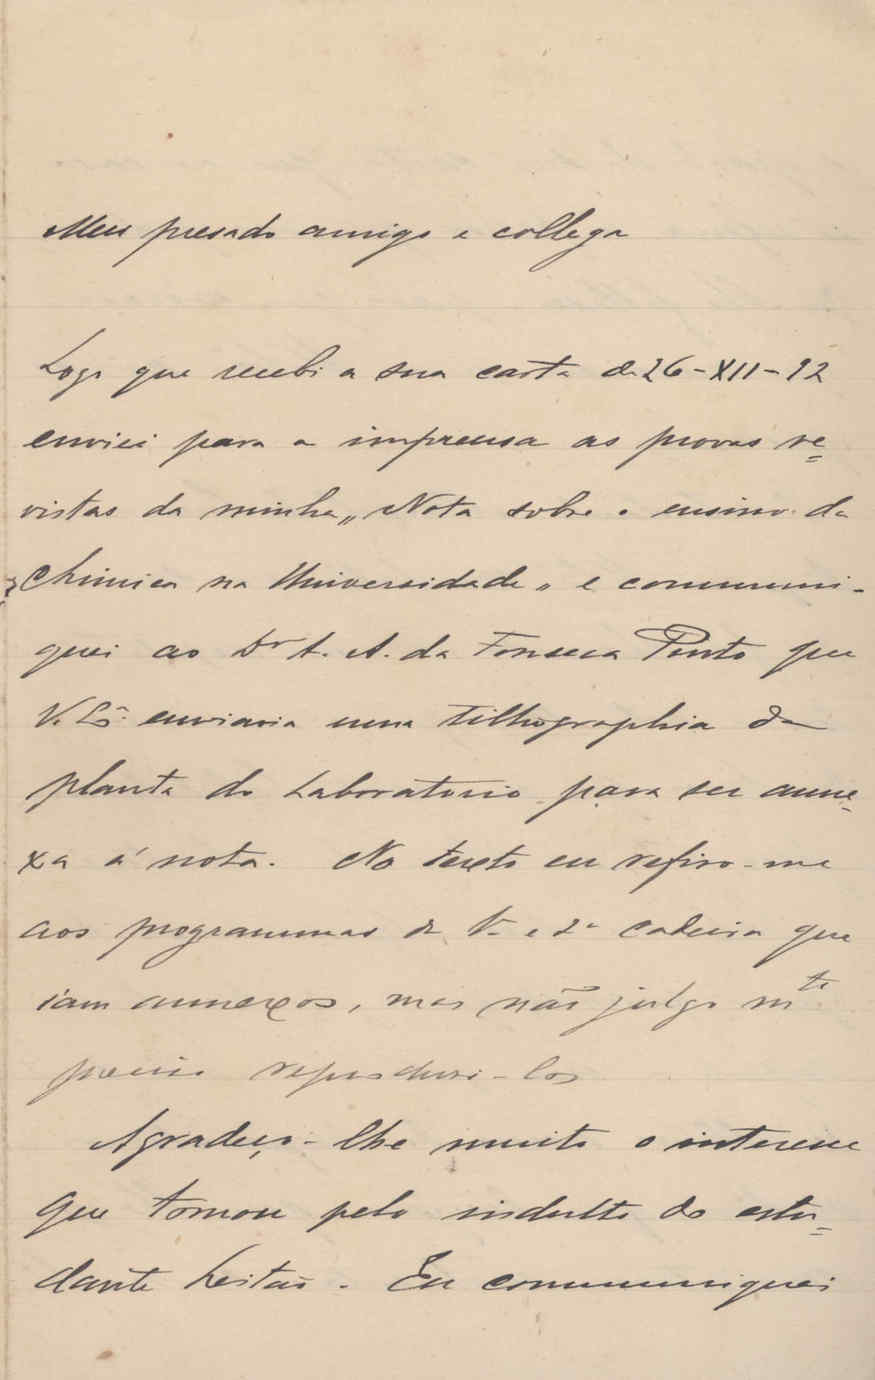 Meu presado amigo e collega
Logo que recebi a sua carta de 26-XII-92
enviei para a imprensa as provas re=
vistas da minha „Nota sobre o ensino da
Chimica na Universidade„ e communi-
quei ao Dr A. A. da Fonseca Pinto que
V. enviaria uma lithographia da
planta do Laboratorio para ser anne=
xa á nota. No texto eu refiro-me
aos programmas da 1ª e 2ª cadeira que
iam annexos, mas não julgo mto
preciso reproduzi-los
Agradeço-lhe muito o interesse
que tomou pelo indulto do estu=
dante Leitão. Eu communiquei